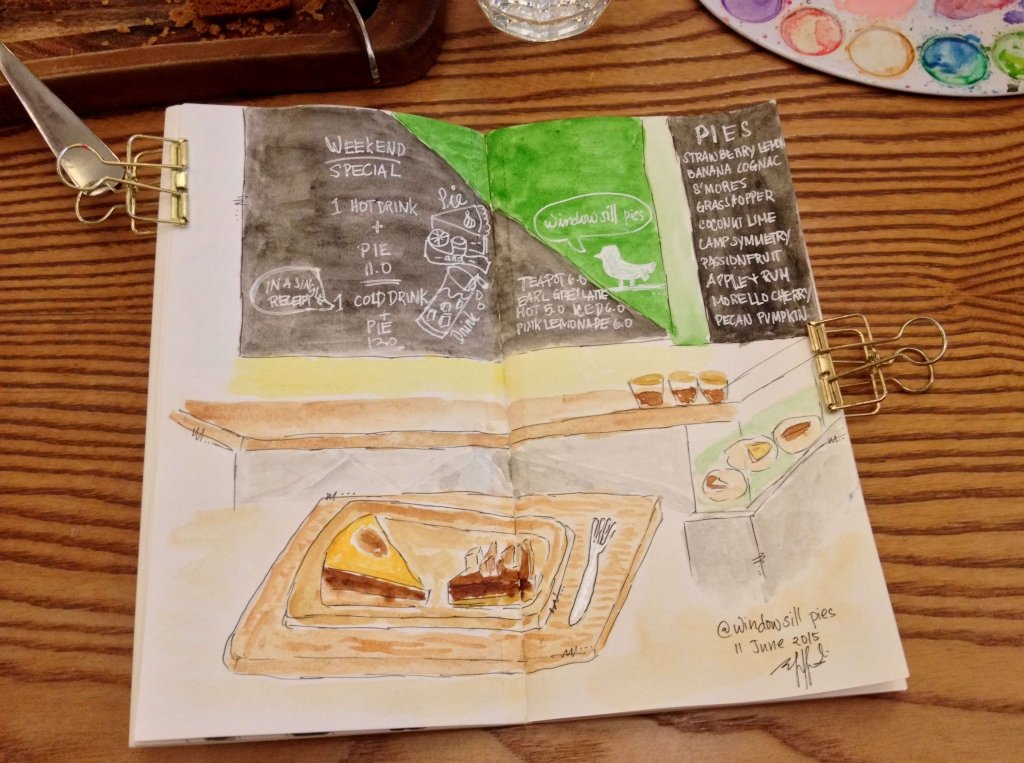 WEEKEND
SPECIAL
1 HOT DRINK
+
PIE
11.0
1 COLD DRINK
+
PIE
12.0
IN A SINGLE
RECEIPT
Pie
and
Drink
windowsill pies
TEAPOT 6.0
EARL GREY LATTE
HOT 5.0 ICED 6.0
PINK LEMONADE 6.0
PIES
STRAWBERRY LEMON
BANANA COGNAC
S'MORES
GRASSHOPPER
COCONUT LIME
CAMP SYMMETRY
PASSIONFRUIT
APPLE + RUM
MORELLO CHERRY
PECAN PUMPKIN
@windowsill pies
11 June 2015